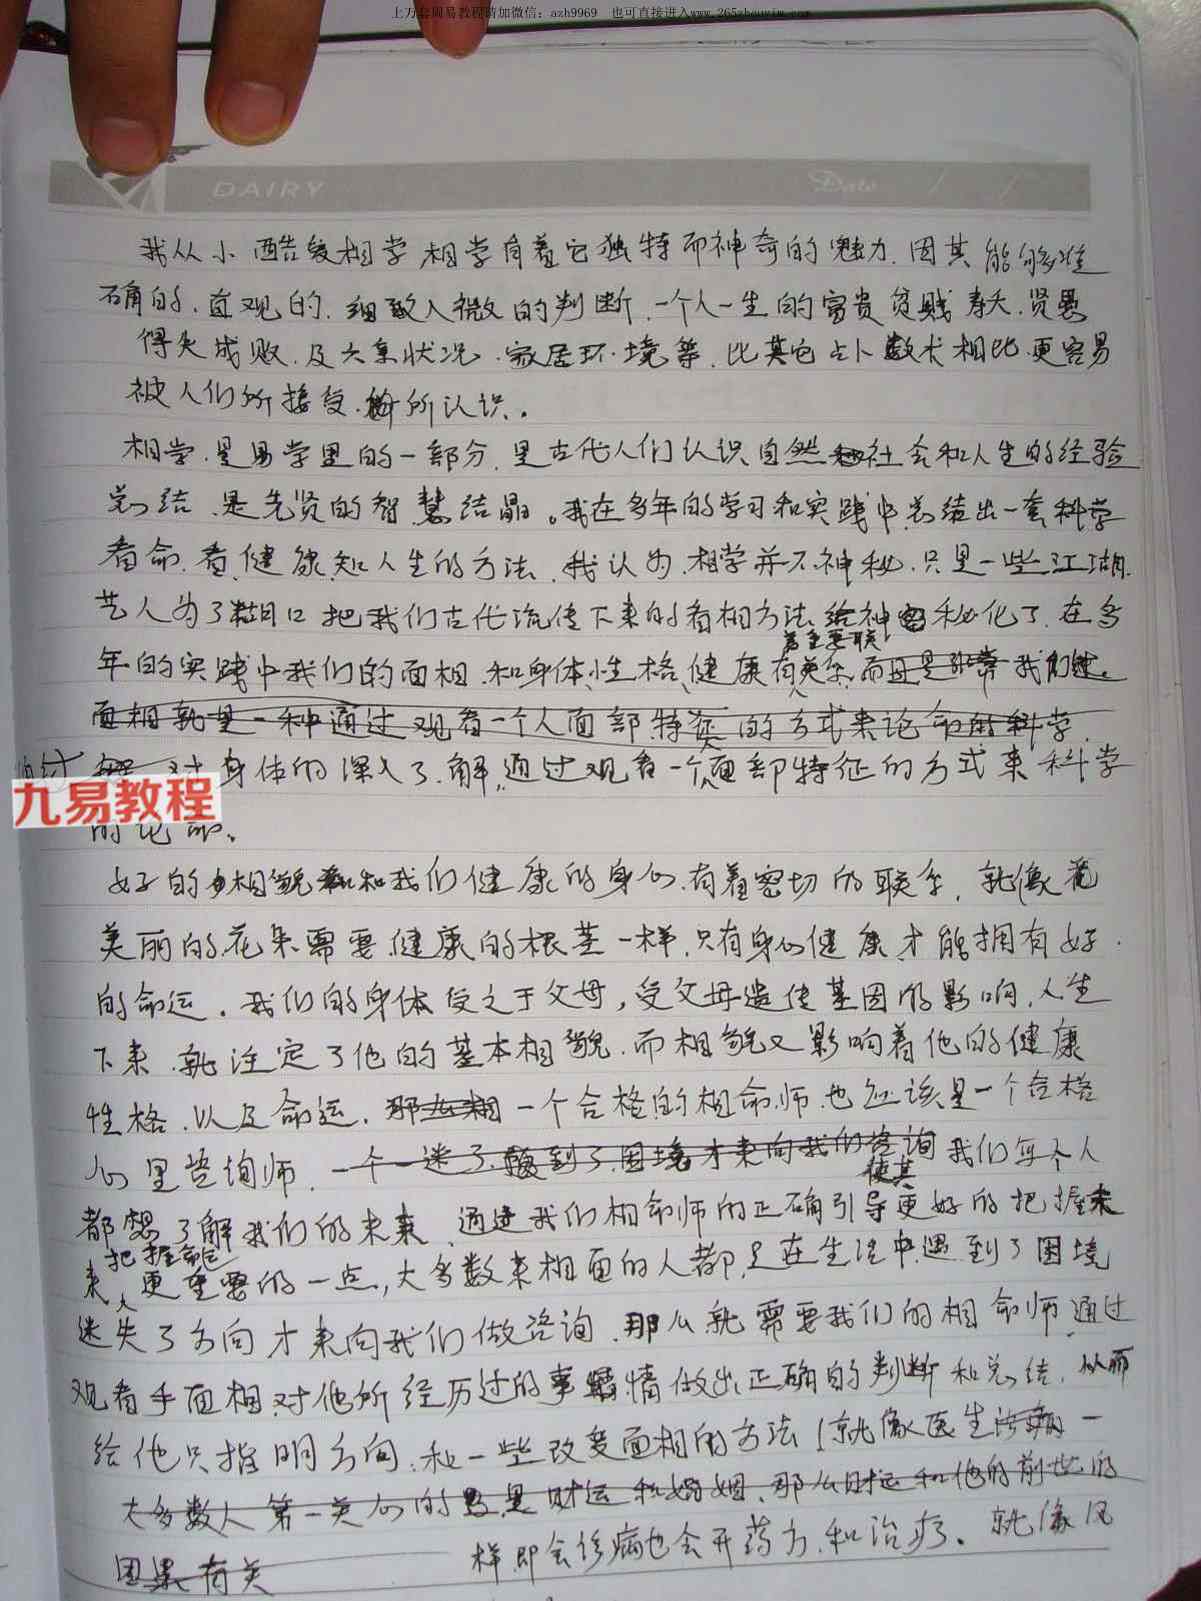 上万套周易教程请加微信：azh9969 也可直接进入www.265zhouyim.com
DAIRY Date / /
我从小酷爱相学,相学有着它独特而神奇的魅力,因其能够准
确的、直观的、细致入微的判断,一个人一生的富贵贫贱、寿夭、贤愚
得失成败、及六亲状况、家居环境等,比其它占卜数术相比更容易
被人们所接受、所认识。
相学,是易学里的一部分,是古代人们认识自然社会和人生的经验
总结、是先贤的智慧结晶。我在多年的学习和实践中总结出一套科学
看命、看健康知人生的方法,我认为,相学并不神秘,只是一些江湖
艺人为了糊口把我们古代流传下来的看相方法给神秘化了,在多
着重要联
年的实践中我们的面相、和身体、性格、健康有关系,而且是非常我们
面相就是一种通过观看一个人面部特征的方式来论命的科学,
通过 对身体的深入了解,通过观看一个人面部特征的方式来科学
九易教程
的论命。
好的相貌和我们健康的身心有着密切的联系,就像花
美丽的花朵需要健康的根茎一样,只有身心健康才能拥有好
的命运。我们的身体受之于父母,受父母遗传基因的影响,人生
下来,就注定了他的基本相貌,而相貌又影响着他的健康
性格、以及命运,那么相一个合格的相命师,也应该是一个合格
心里咨询师,一个迷了到了困境才来向我们咨询 我们每个人
使其
都想了解我们的未来,通过我们相命师的正确引导更好的把握未
把握命运
来,更重要的一点,大多数来相面的人都是在生活中遇到了困境
迷失了方向才来向我们做咨询,那么就需要我们的相命师通过
观看手面相对他所经历过的事情做出正确的判断和总结,从而
给他只指明方向,和一些改变面相的方法(就像医生治病一
大多数人第一关心的是财运和婚姻,那么财运和他的前世的
因果有关 样即会诊病也会开药方和治疗。就像风